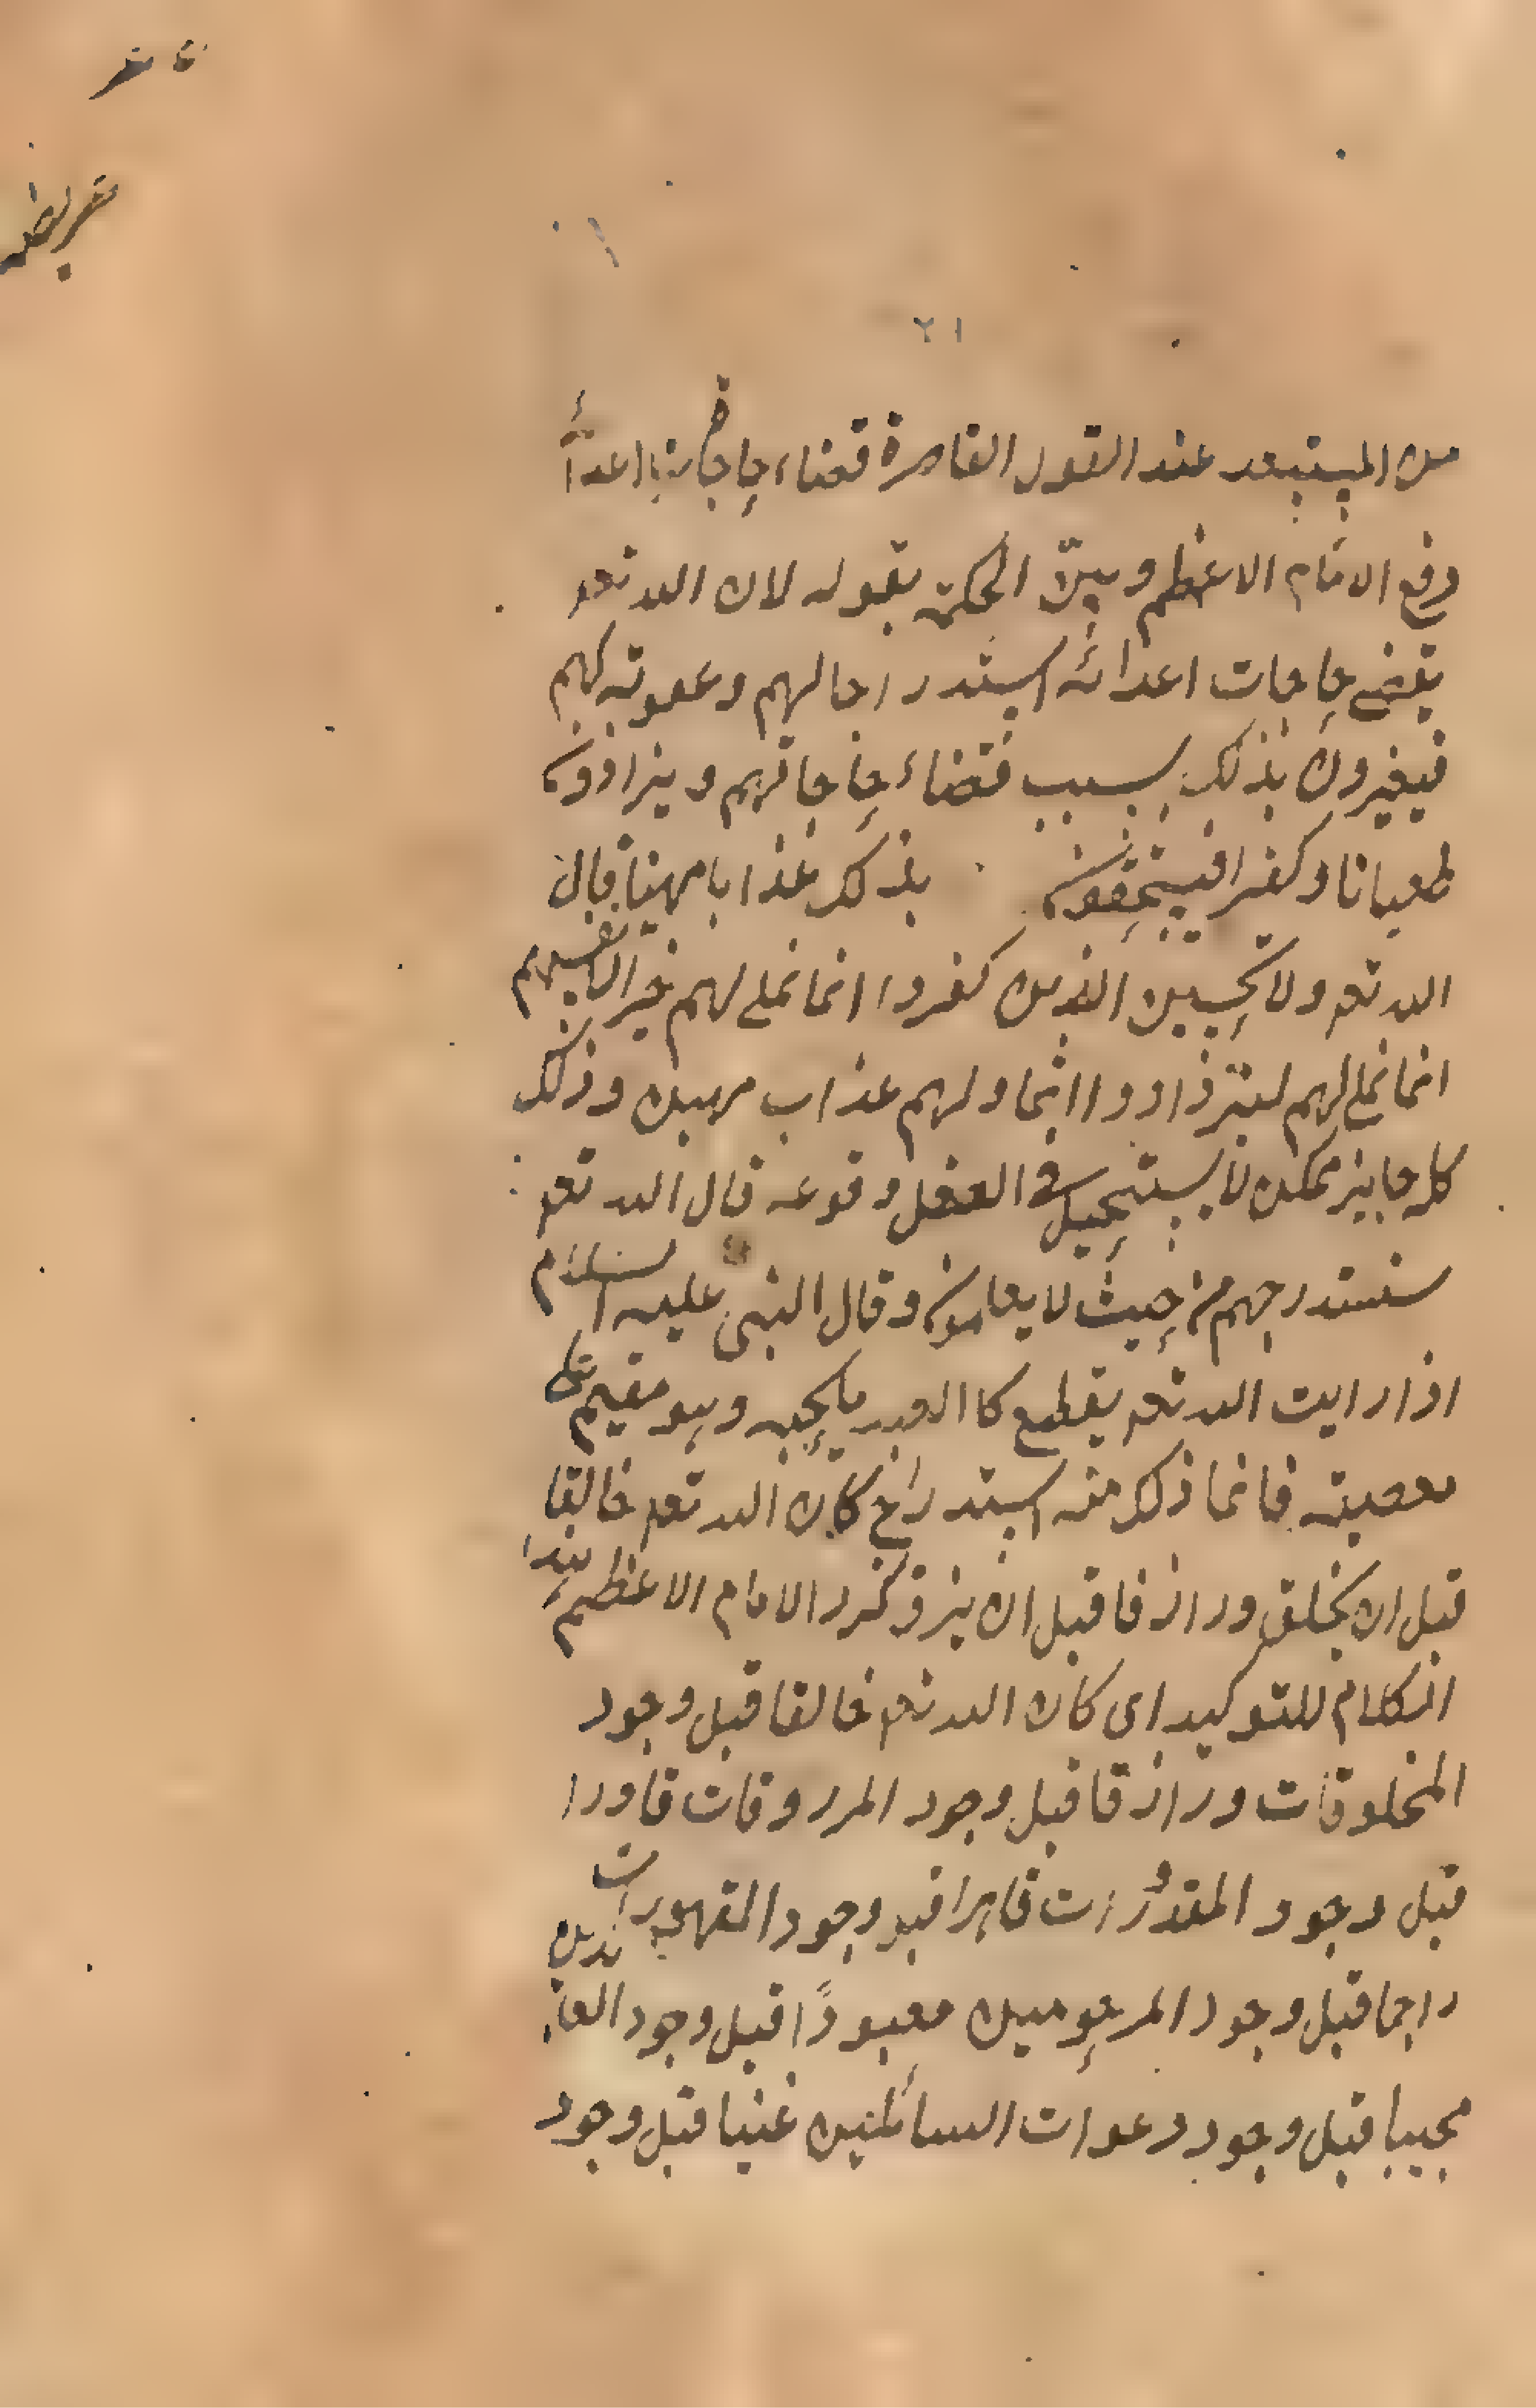 ٢١
من المستبعد عند القول القاصرة قضاء حاجات اعداء
دفع الامام الاعظم وبين الحكمة بقوله لان الله تعه
يقضي حاجات اعدائه استدراجا لهم وعقوبة لهم
فيغترون بذلك بسبب قضاء حاجاتهم ويزدادون
طغيانا وكفرا فيستحقون بذلك عذابا مهينا قال
الله تعه ولا تحسبن الذين كفروا انما نملي لهم خير لانفسهم
انما نملي لهم ليزدادوا اثما ولهم عذاب مهين وذلك
كله جايز ممكن لا يستحيل في العقل وقوعه قال الله تعه
سنستدرجهم من حيث لا يعلمون وقال النبي عليه السلام
اذا رايت الله تعه يعطي العبد ما يحبه وهو مقيم على
معصيته فانما ذلك منه استدراج كان الله تعه خالقا
قبل ان يخلق ورازقا قبل ان يرزق كرر الامام الاعظم هذا
الكلام للتوكيد اى كان الله تعه خالقا قبل وجود
المخلوقات ورازقا قبل وجود المرزوقات قادرا
قبل وجود المقدورات قاهرا قبل وجود المقهورات
راحما قبل وجود المرحومين معبودًا قبل وجود العابدين
مجيبا قبل وجود دعوات السائلين غنيا قبل وجود